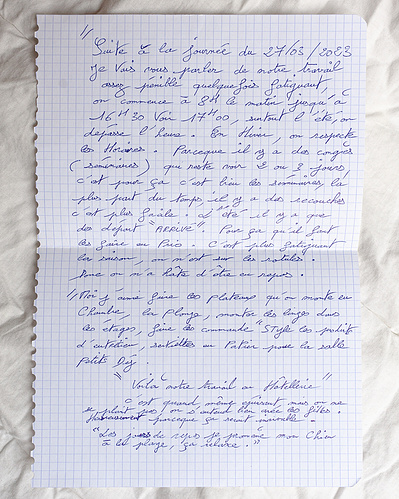 "
Suite à la journée du 27/03/2023
Je vais vous parler de notre travail
assez pénible quelquefois fatiguent,
on commence à 8H le matin jusqu'à
16H30 voir 17H00, surtout l'été, on
depasse l'heure. En Hiver, on respecte
les Horaires. Parceque il y a des congrès
(séminaires) qui reste voir 2 ou 3 jours,
c'est pour ça c'est bien les séminaires, la
plus part du temps, il y a des recouches
c'est plus facile. L'été il y a que
des départ "ARRIVÉ". Pour ça qu'il faut
les faire en Prio. C'est plus fatiguant
la saison, on n'est sur les rotules.
Donc on n'a hâte d'être en repos.
"Moi j'aime faire les plateaux qu'on monte en
Chambre, la Plonge, monter les linges dans
les étages, faire les commande "STYLE les produits
d'entretien, serviettes en Papier pour la salle
Petits Déj,
"Voilà notre travail en Hôtellerie"
c'est quand même épuisant, mais on ne
se plaint pas, on s'entend bien avec les filles.
Heureusement parceque ça serait
"Les jours de repos je promène mon Chien
à la plage, ça"